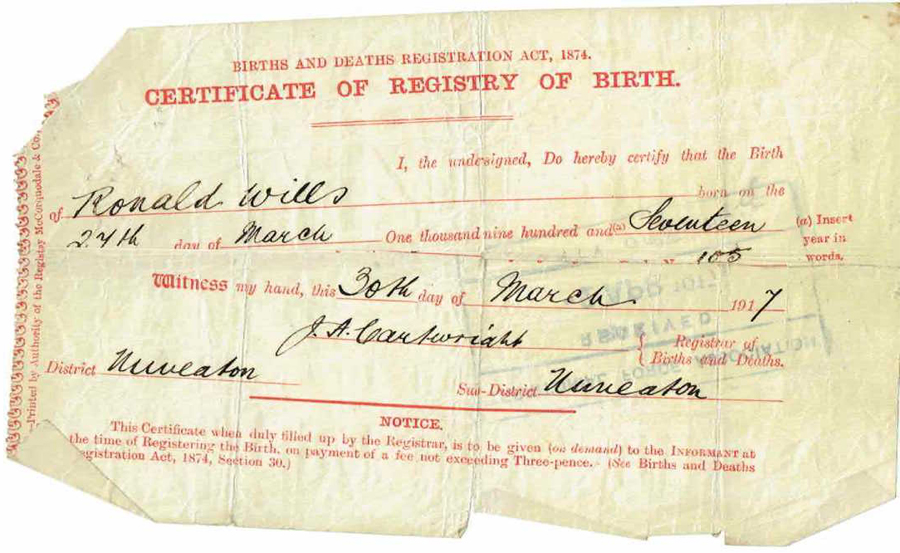 BIRTHS AND DEATHS REGISTRATION ACT, 1874.
CERTIFICATE OF REGISTRY OF BIRTH.
I, the undersigned, Do hereby certify that the Birth
of Ronald Wills born on the
day of March One thousand nine hundred and (a) Seventeen
(a) Insert
year in
words.
105
Witness my hand, this 30th day of March 1917
J. A. Cartwright
Registrar of
Births and Deaths.
District Nuneaton
Sub-District Nuneaton
NOTICE.
This Certificate when duly filled up by the Registrar, is to be given (on demand) to the INFORMANT at
the time of Registering the Birth, on payment of a fee not exceeding Three-pence. (See Births and Deaths
gistration Act, 1874, Section 30.)
Printed by Authority of the Registrar McCorquodale & Co.
RECEIVED